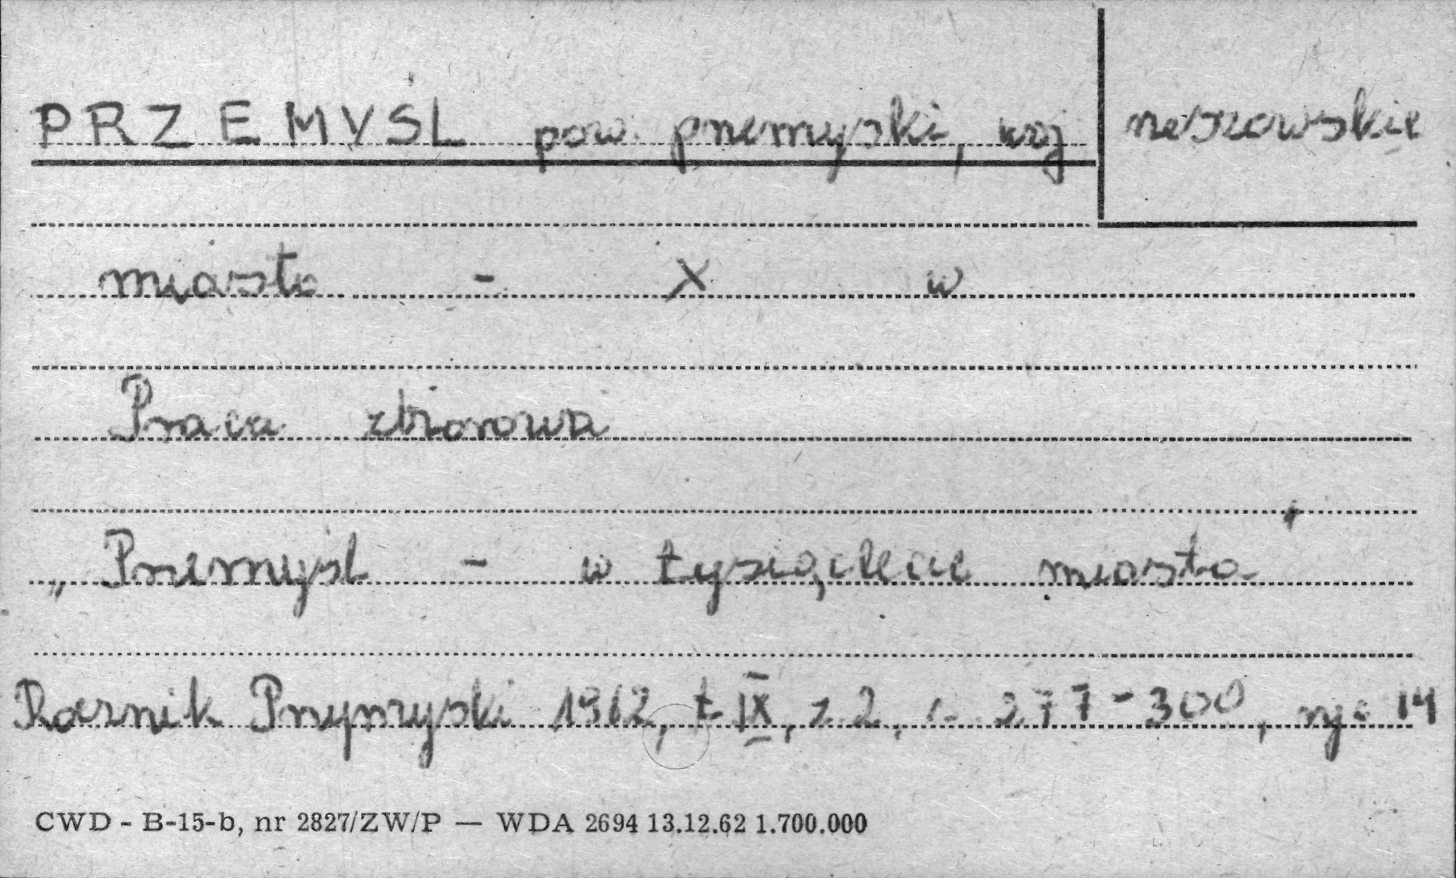 PRZEMYŚL pow. przemyski, woj rzeszowskie
miasto - X w
Praca zbiorowa
„Przemyśl - w tysiąclecie miasta"
Rocznik Przemyski 1962, t IX, z 2, s. 277-300, ryc 14
CWD - B-15-b, nr 2827/ZW/P — WDA 2694 13.12.62 1.700.000